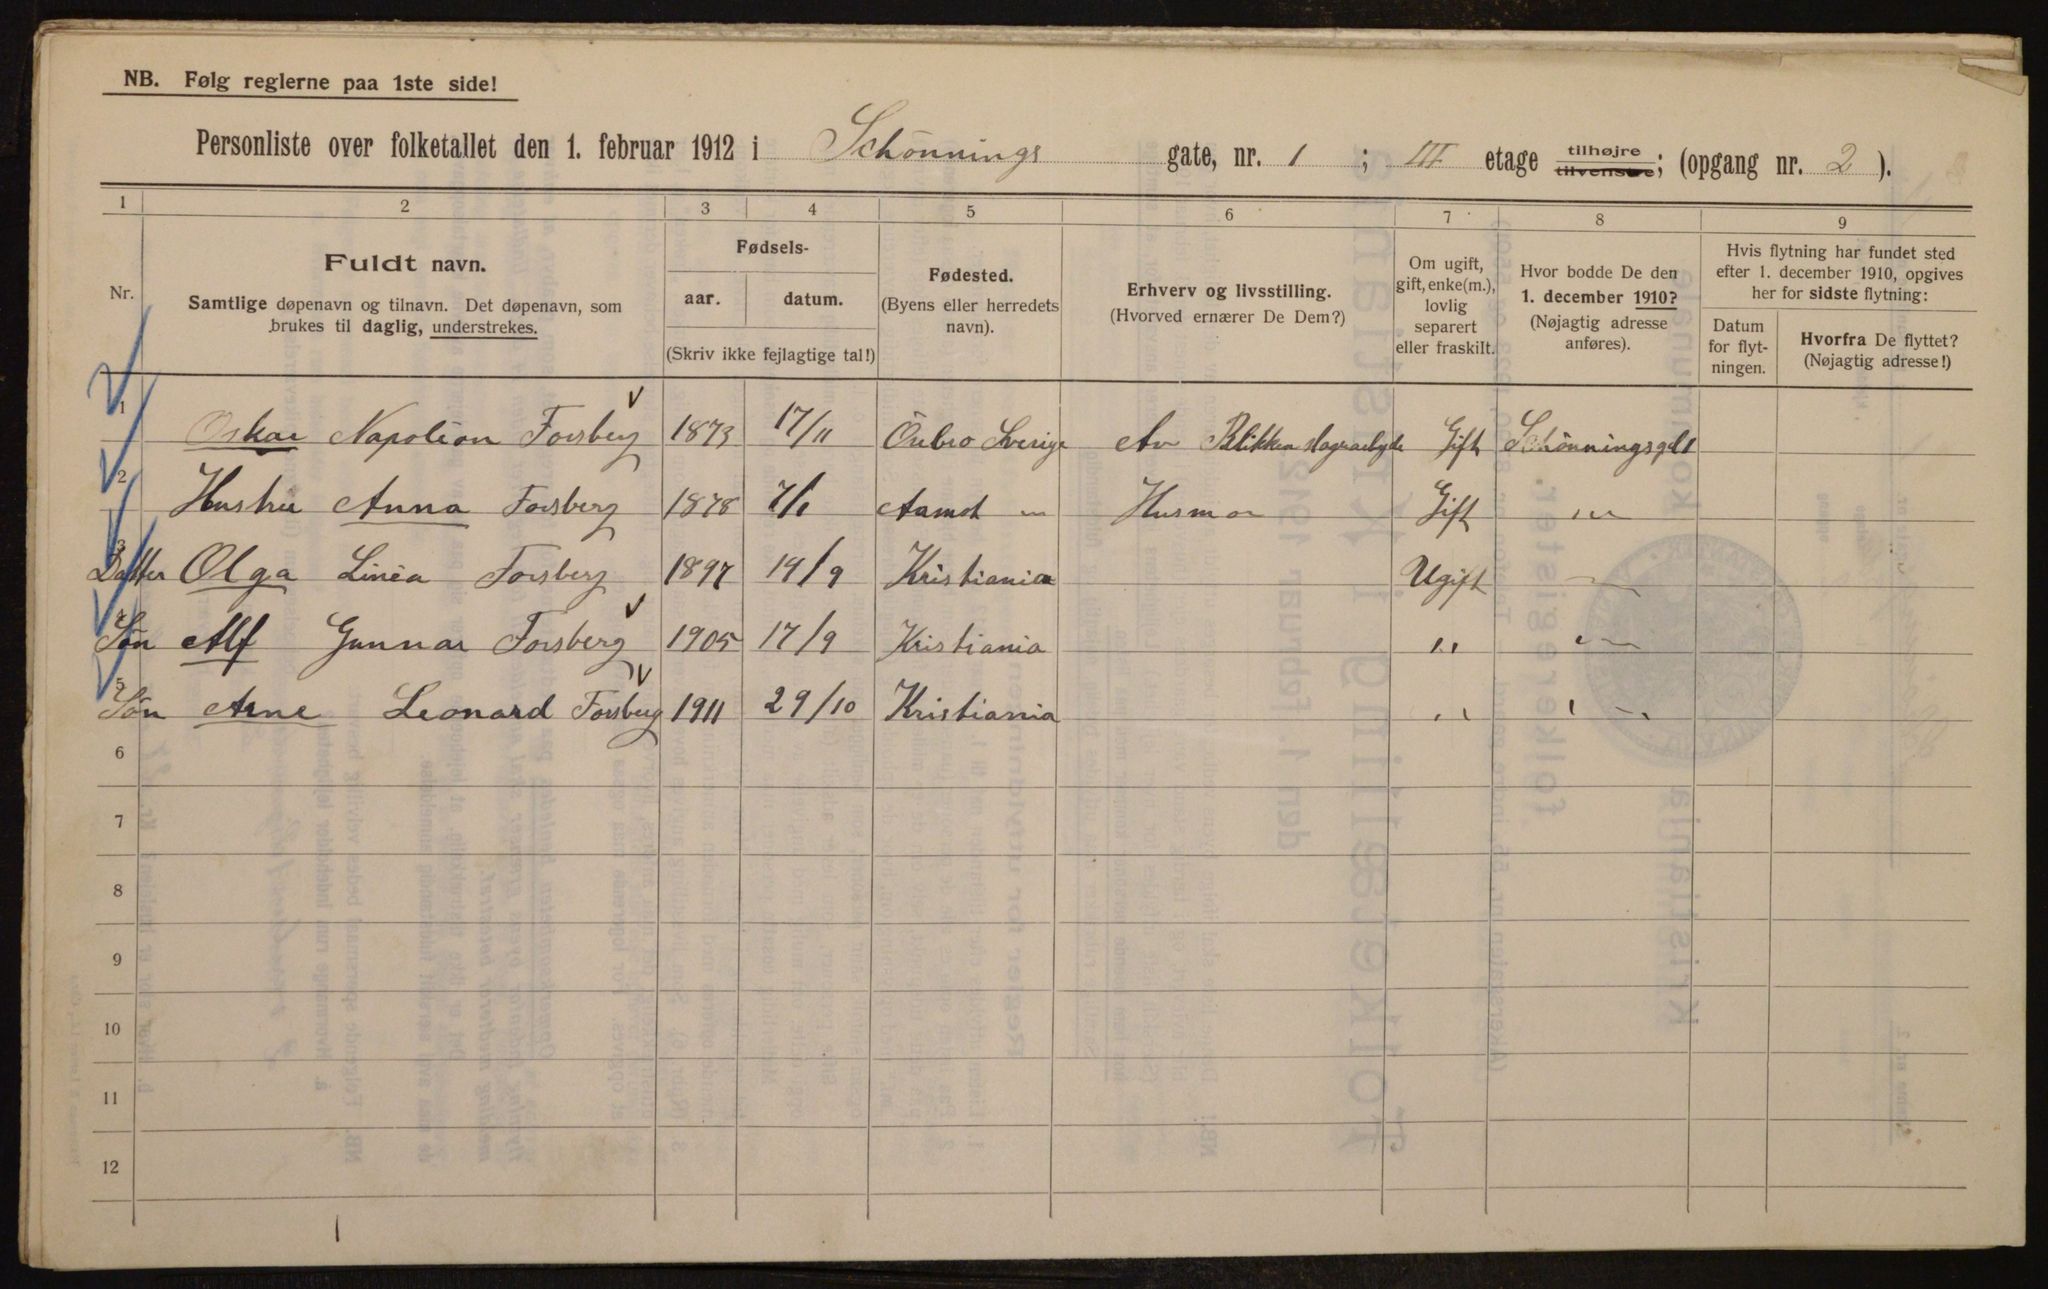 NB. Følg reglerne paa 1ste side!
Personliste over folketallet den 1. februar 1912 i Schönnings gate, nr. 1 ; III etage tilhøjre tilvenstre; (opgang nr. 2 ).
1 2 3 4 5 6 7 8 9
Nr.
Fuldt navn.
Samtlige døpenavn og tilnavn. Det døpenavn, som
brukes til daglig, understrekes.
Fødsels-
aar. datum.
(Skriv ikke fejlagtige tal!)
Fødested.
(Byens eller herredets
navn).
Erhverv og livsstilling.
(Hvorved ernærer De Dem?)
Om ugift,
gift, enke(m.),
lovlig
separert
eller fraskilt.
Hvor bodde De den
1. december 1910?
(Nøjagtig adresse
anføres).
Hvis flytning har fundet sted
efter 1. december 1910, opgives
her for sidste flytning:
Datum
for flyt-
ningen.
Hvorfra De flyttet?
(Nøjagtig adresse!)
1 Oskar Napoleon Forsberg 1873 17/11 Örebro Sverige Gift Schönningsgd 1
2 Hustru Anna Forsberg 1878 7/1 Aamot " Gift "
3 Datter Olga Linèa Forsberg 1897 19/9 Kristiania Ugift "
4 Sön Alf Gunnar Forsberg 1905 17/9 Kristiania " "
5 Sön Arne Leonard Forsberg 1911 29/10 Kristiania " "
6
7
8
9
10
11
12
1